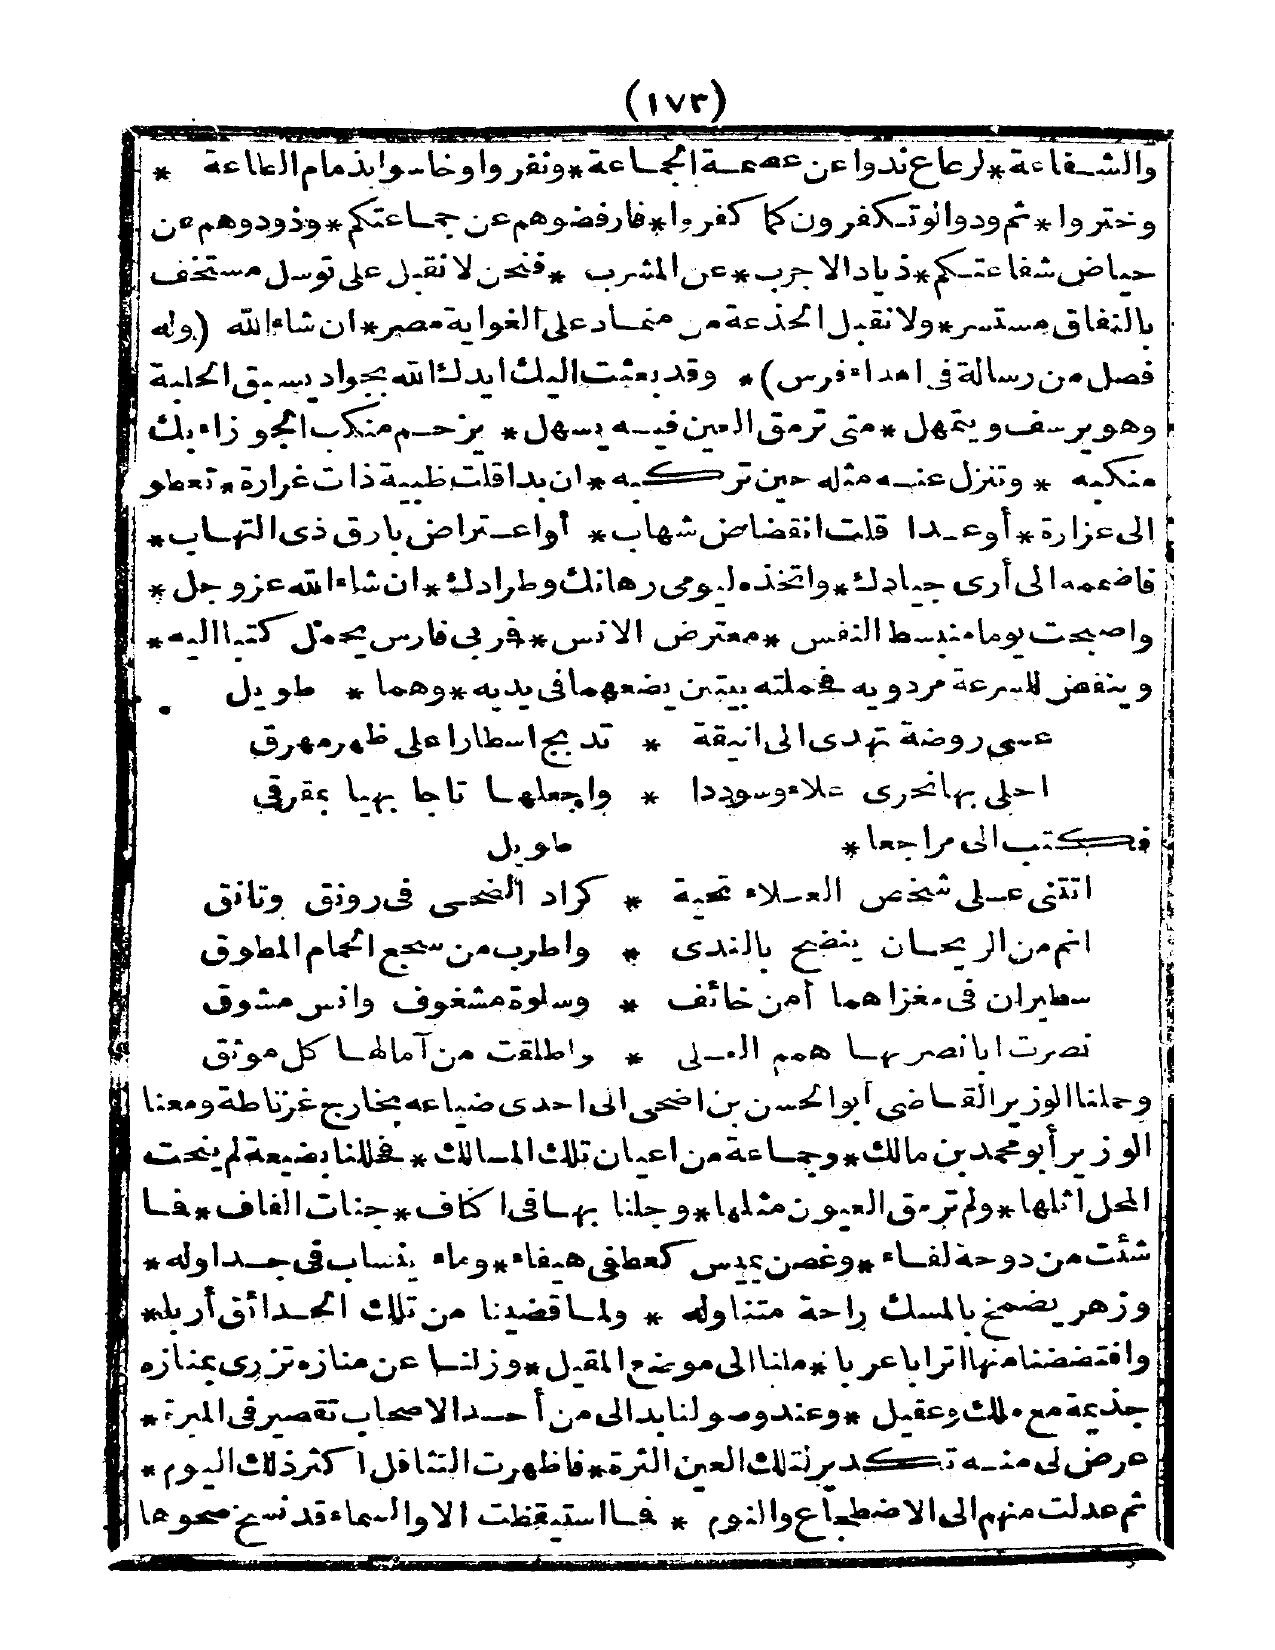 (١٧٣)
والشفاعة * لرعاع ندوا عن عصمة الجماعة * ونفروا وخاسوا بذمام الطاعة *
وختروا * ثم ودوا لو تكفرون كما كفروا * فارفضوهم عن جماعتكم * وذودوهم عن
حياض شفاعتكم * ذياد الاجرب * عن المشرب * فنحن لا نقبل على توسل مستخف
بالنفاق مستسر * ولا نقبل الخدعة من متماد على الغواية مصر * ان شاء الله (وله
فصل من رسالة فى اهداء فرس) * وقد بعثت اليك ايدك الله بجواد يسبق الحلبة
وهو يرسف ويتمهل * متى ترمق العين فيه يسهل * يزحم منكب الجوزاء بك
منكبه * وتنزل عنه مثله حين تركبه * ان بدا قلت ظبية ذات غرارة * تعطو
الى عرارة * أو عدا قلت انقضاض شهاب * أو اعتراض بارق ذى التهاب *
فاضممه الى أرى جيادك * واتخذه ليومى رهانك وطرادك * ان شاء الله عز وجل *
واصبحت يوما منبسط النفس * معترض الانس * فربى فارس يحمل كتبا اليه *
وينفض للسرعة مردويه فحملته بيتين يضعهما فى يديه * وهما * طويل
عسى روضة تهدى الى انيقة * تدبج اسطارا على ظهر مهرق
احلى بها نحرى علاء وسوددا * واجعلها تاجا بهيا بمفرقى
فكتب الى مراجعا * طويل
اتتنى على شخص العلاء تحية * كراد الضحى فى رونق وتانق
انم من الريحان ينضح بالندى * واطرب من سجع الحمام المطوق
سطيران فى مغزاهما أمن خائف * وسلوة مشغوف وانس مشوق
نصرت ابا نصر بها همم العلى * واطلقت من آمالها كل موثق
وحملنا الوزير القاضى أبو الحسن بن اضحى الى احدى ضياعه بخارج غرناطة ومعنا
الوزير أبو محمد بن مالك * وجماعة من اعيان تلك المسالك * فحللنا بضيعة لم ينحت
المحل اثلها * ولم ترمق العيون مثلها * وجلنا بها فى اكاف * جنات الفاف * فما
شئت من دوحة لفاء * وغصن يميس كعطفى هيفاء * وماء ينساب فى جداوله *
وزهر يضمخ بالمسك راحة متناوله * ولما قضينا من تلك الحدائق أربا *
وافتضضنا منها اترابا عربا * ملنا الى موضع المقيل * وزلنا عن منازه تزرى بمنازه
جذيمة مع مالك وعقيل * وعند وصولنا بدا لى من أحد الاصحاب تقصير فى المبرة *
عرض لى منه تكدير لتلك العين الثرة * فاظهرت التثاقل اكثر ذلك اليوم *
ثم عدلت منهم الى الاضطجاع والنوم * فما استيقظت الا والسماء قد نسخ صحوها